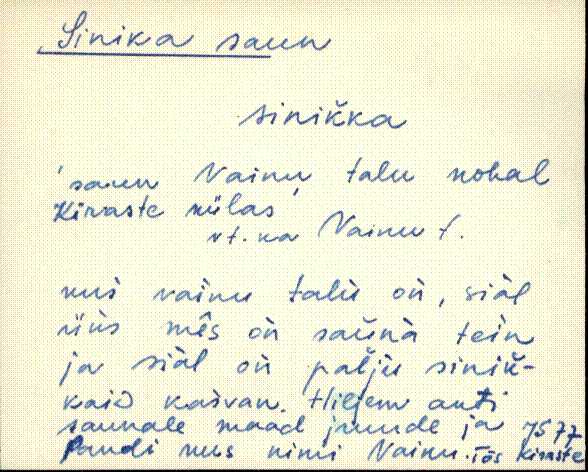 Sinika saun
siniǩka
'saun Vainu talu kohal
Kiraste külas'
vt. ka Vainu t.
kus vainu talu òn, siàl
üüs mês òn saùna tein
ja siàl òn palju siniǩ-
kaid kasvan. Hiljem anti
saunale maad juurde ja
pandi uus nimi Vainu. Tõs Kiraste